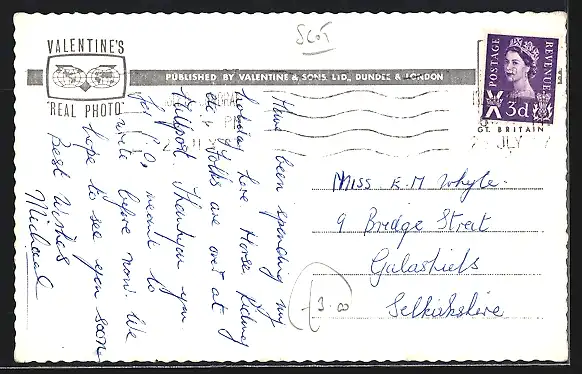 Scot
VALENTINE'S
"REAL PHOTO"
PUBLISHED BY VALENTINE & SONS, LTD., DUNDEE & LONDON
POSTAGE
REVENUE
3d
GT. BRITAIN
JLY
Have been spending my
holiday here Horse Riding
etc, folks are over at
Thankyou you
for meant to
write before now. We
hope to see you soon
Best Wishes
Michael
Miss E. M Whyte.
9 Bridge Street
Galashiels
Selkirkshire
£3.00